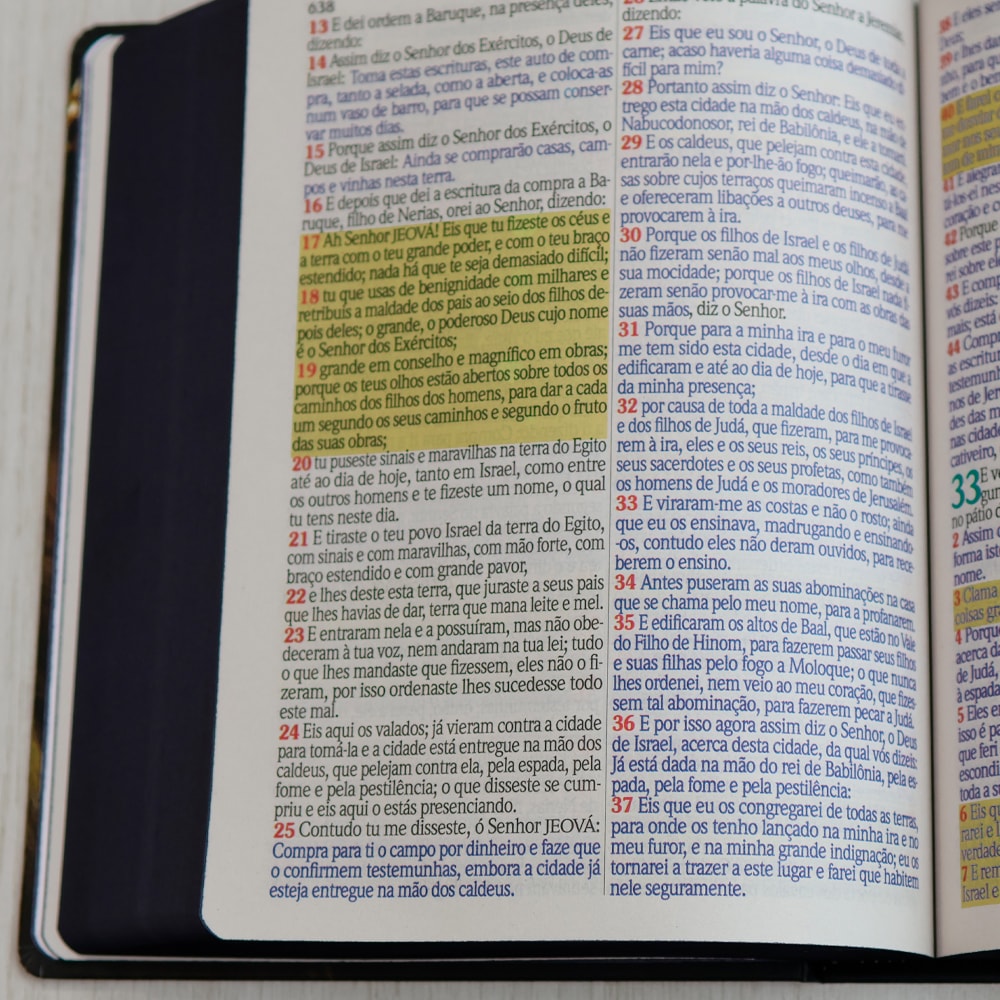 638
13 E dei ordem a Baruque, na presença deles,
dizendo:
14 Assim diz o Senhor dos Exércitos, o Deus de
Israel: Toma estas escrituras, este auto de com-
pra, tanto a selada, como a aberta, e coloca-as
num vaso de barro, para que se possam conser-
var muitos dias.
15 Porque assim diz o Senhor dos Exércitos, o
Deus de Israel: Ainda se comprarão casas, cam-
pos e vinhas nesta terra.
16 E depois que dei a escritura da compra a Ba-
ruque, filho de Nerias, orei ao Senhor, dizendo:
17 Ah Senhor JEOVÁ! Eis que tu fizeste os céus e
a terra com o teu grande poder, e com o teu braço
estendido; nada há que te seja demasiado difícil;
18 tu que usas de benignidade com milhares e
retribuis a maldade dos pais ao seio dos filhos de-
pois deles; o grande, o poderoso Deus cujo nome
é o Senhor dos Exércitos;
19 grande em conselho e magnífico em obras;
porque os teus olhos estão abertos sobre todos os
caminhos dos filhos dos homens, para dar a cada
um segundo os seus caminhos e segundo o fruto
das suas obras;
20 tu puseste sinais e maravilhas na terra do Egito
até ao dia de hoje, tanto em Israel, como entre
os outros homens e te fizeste um nome, o qual
tu tens neste dia.
21 E tiraste o teu povo Israel da terra do Egito,
com sinais e com maravilhas, com mão forte, com
braço estendido e com grande pavor,
22 e lhes deste esta terra, que juraste a seus pais
que lhes havias de dar, terra que mana leite e mel.
23 E entraram nela e a possuíram, mas não obe-
deceram à tua voz, nem andaram na tua lei; tudo
o que lhes mandaste que fizessem, eles não o fi-
zeram, por isso ordenaste lhes sucedesse todo
este mal.
24 Eis aqui os valados; já vieram contra a cidade
para tomá-la e a cidade está entregue na mão dos
caldeus, que pelejam contra ela, pela espada, pela
fome e pela pestilência; o que disseste se cum-
priu e eis aqui o estás presenciando.
25 Contudo tu me disseste, ó Senhor JEOVÁ:
Compra para ti o campo por dinheiro e faze que
o confirmem testemunhas, embora a cidade já
esteja entregue na mão dos caldeus.
26 Então veio a palavra do Senhor a Jeremias,
dizendo:
27 Eis que eu sou o Senhor, o Deus de toda a
carne; acaso haveria alguma coisa demasiado di-
fícil para mim?
28 Portanto assim diz o Senhor: Eis que eu en-
trego esta cidade na mão dos caldeus, na mão de
Nabucodonosor, rei de Babilônia, e ele a tomará.
29 E os caldeus, que pelejam contra esta cidade,
entrarão nela e por-lhe-ão fogo; queimarão, as ca-
sas sobre cujos terraços queimaram incenso a Baal
e ofereceram libações a outros deuses, para me
provocarem à ira.
30 Porque os filhos de Israel e os filhos de Judá
não fizeram senão mal aos meus olhos, desde a
sua mocidade; porque os filhos de Israel nada fi-
zeram senão provocar-me à ira com as obras das
suas mãos, diz o Senhor.
31 Porque para a minha ira e para o meu furor
me tem sido esta cidade, desde o dia em que a
edificaram e até ao dia de hoje, para que a tirasse
da minha presença;
32 por causa de toda a maldade dos filhos de Israel
e dos filhos de Judá, que fizeram, para me provoca-
rem à ira, eles e os seus reis, os seus príncipes, os
seus sacerdotes e os seus profetas, como também
os homens de Judá e os moradores de Jerusalém.
33 E viraram-me as costas e não o rosto; ainda
que eu os ensinava, madrugando e ensinando-
-os, contudo eles não deram ouvidos, para rece-
berem o ensino.
34 Antes puseram as suas abominações na casa
que se chama pelo meu nome, para a profanarem.
35 E edificaram os altos de Baal, que estão no Vale
do Filho de Hinom, para fazerem passar seus filhos
e suas filhas pelo fogo a Moloque; o que nunca
lhes ordenei, nem veio ao meu coração, que fizes-
sem tal abominação, para fazerem pecar a Judá.
36 E por isso agora assim diz o Senhor, o Deus
de Israel, acerca desta cidade, da qual vós dizeis:
Já está dada na mão do rei de Babilônia, pela es-
pada, pela fome e pela pestilência:
37 Eis que eu os congregarei de todas as terras,
para onde os tenho lançado na minha ira e no
meu furor, e na minha grande indignação; eu os
tornarei a trazer a este lugar e farei que habitem
nele seguramente.
38 E eles
Deus;
39 e lhes
40 E farei
41 E
coração e
42 Porque
sobre este
43 E
vós dizeis:
mais; está
44
nas cidade
cativeiro,
33 E
no pátio
2 Assim
nome.
3 Clama
coisas
4
acerca da
de Judá,
à espada
5 Eles
isso é
que feri
toda a
6 Eis
rarei e
verdade
7 E
Israel e